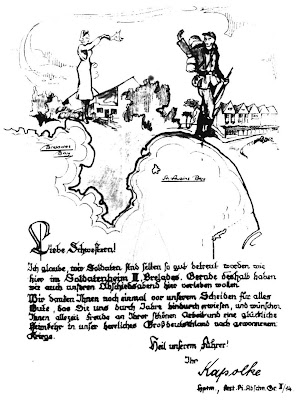 Brelades
Bay
St Aubins Bay
Liebe Schwestern!
Ich glaube, wir Soldaten sind selten so gut betreut worden wie
hier im Soldatenheim II, Brelades. Gerade deshalb haben
wir auch unseren Abschiedsabend hier verleben wollen.
Wir danken Ihnen noch einmal vor unserem Scheiden für alles
Gute, das Sie uns durch Jahre hindurch erwiesen, und wünschen
Ihnen allezeit Freude an Ihrer schönen Arbeit und eine glückliche
Heimkehr in unser herrliches Großdeutschland nach gewonnenem
Kriege.
Heil unserem Führer!
Ihr
Kapolke
Hptm., Fest. Pi. Abschn. Gr. I/14